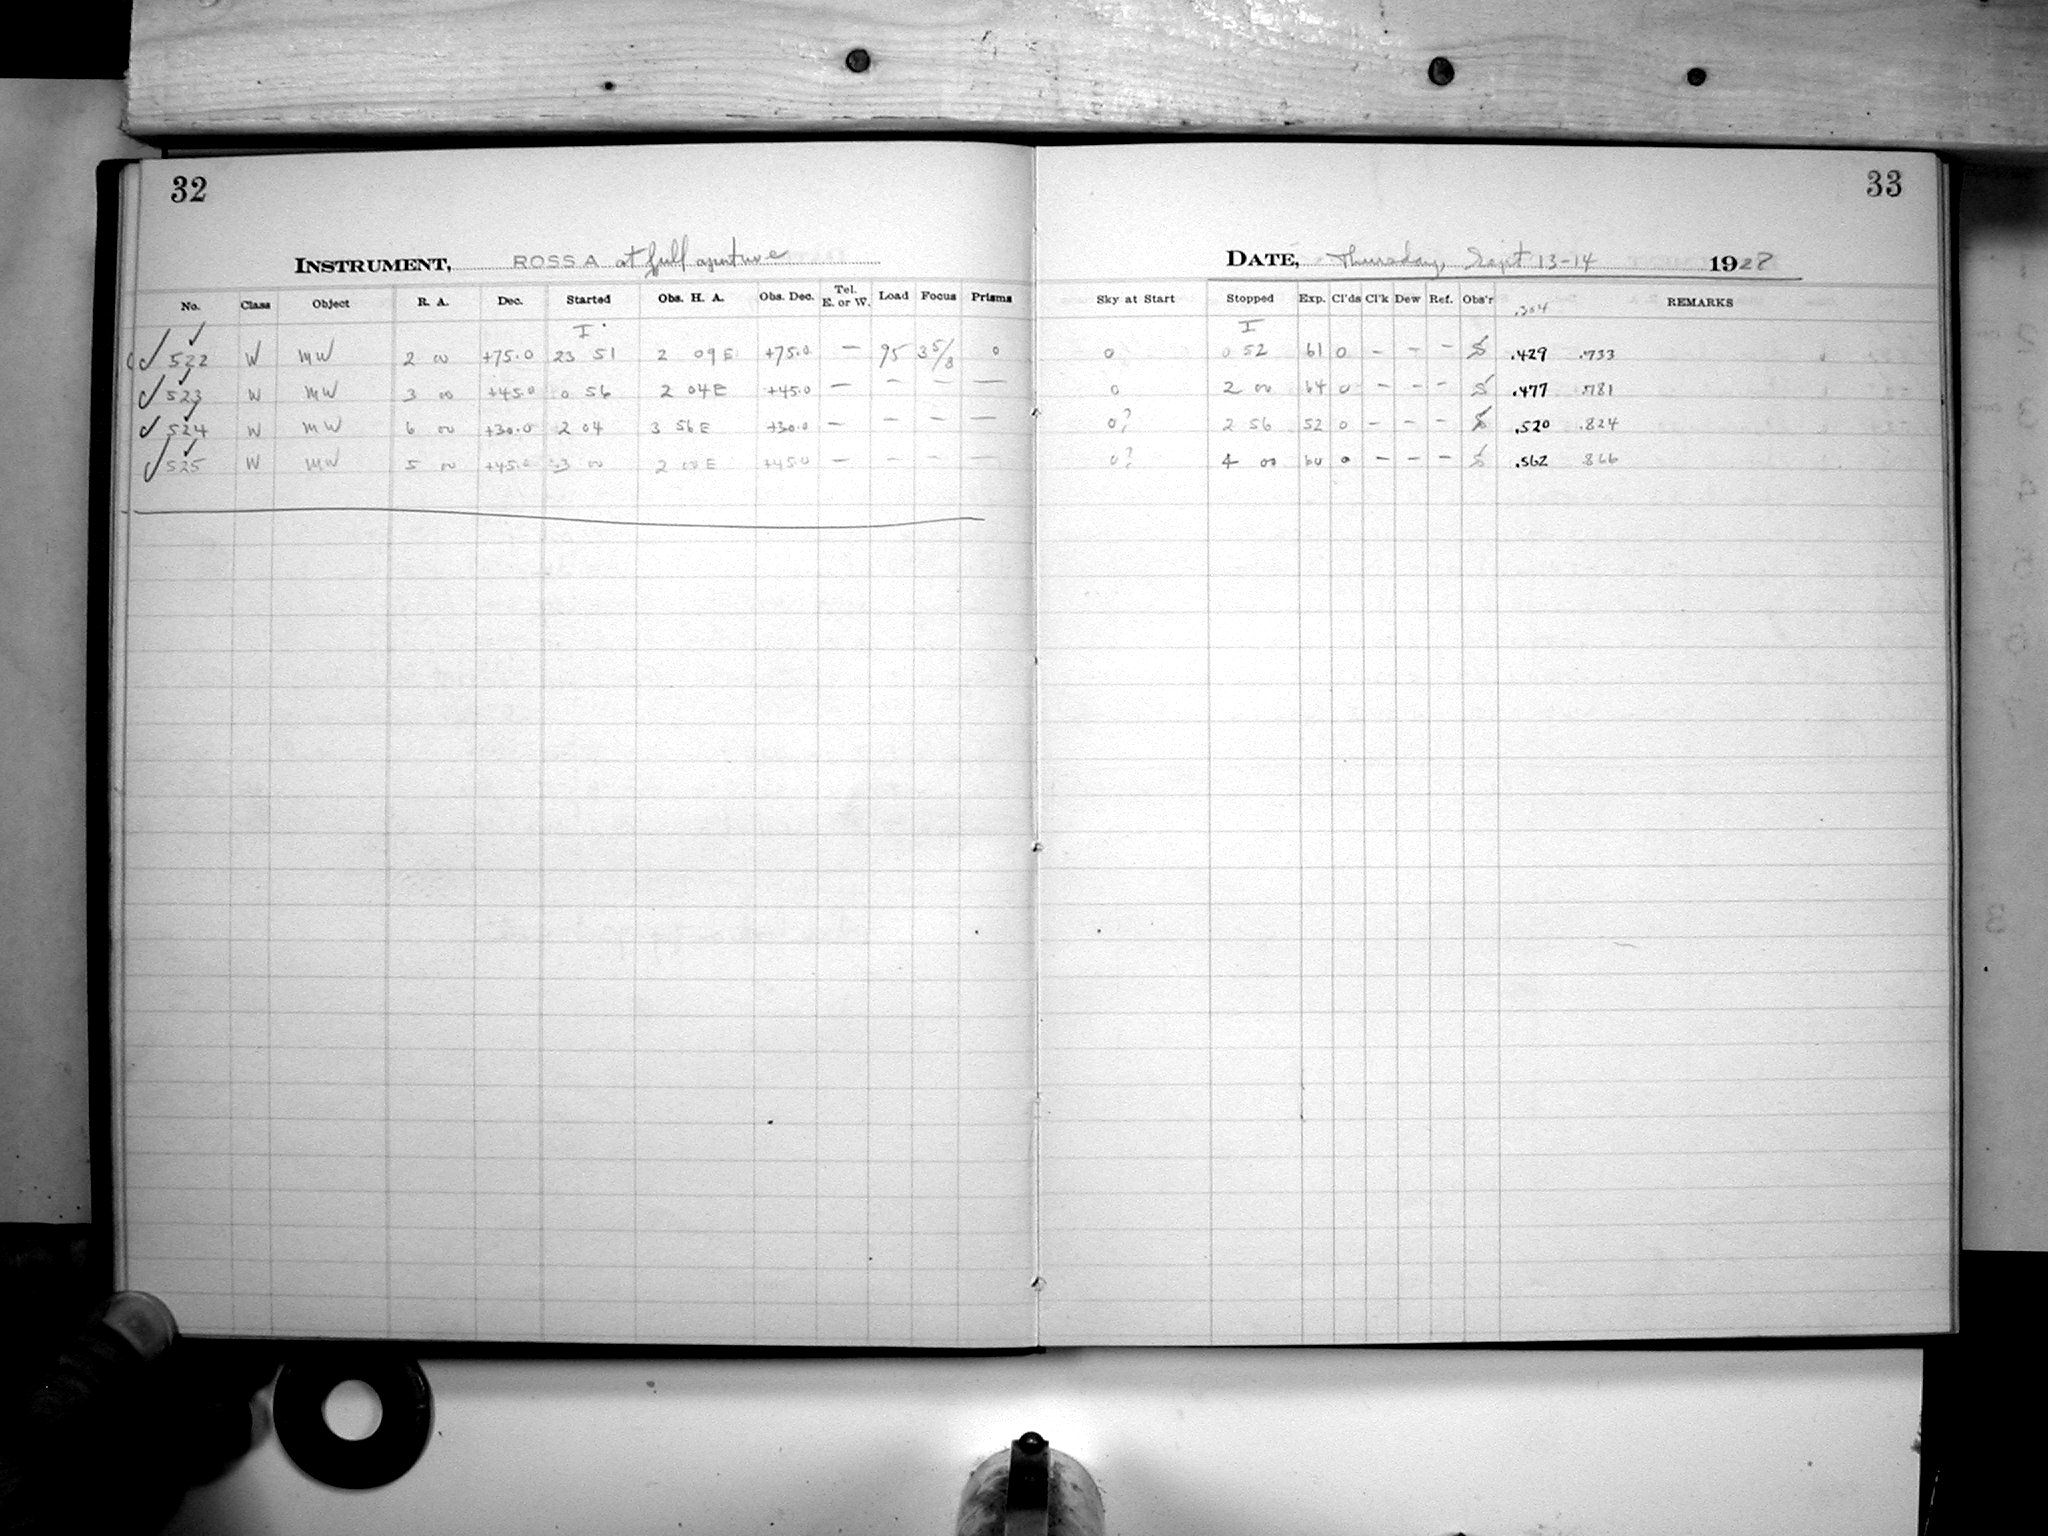 32
33
INSTRUMENT, ROSS A at full aperture
DATE, Thursday, Sept 13-14 1928
No. Class Object R. A. Dec. Started Obs. H. A. Obs. Dec. Tel. E. or W. Load Focus Prisms Sky at Start Stopped Exp. Cl'ds Cl'k Dew Ref. Obs'r .304 REMARKS
I I
522 W MW 2 00 +75.0 23 51 2 09 E +75.0 — 95 3 5/8 0 0 0 52 61 0 – – – S .429 .733
523 W MW 3 00 +45.0 0 56 2 04 E +45.0 — – – — 0 2 00 64 0 – – – S .477 .781
524 W MW 6 00 +30.0 2 04 3 56 E +30.0 — – – — 0? 2 56 52 0 – – – S .520 .824
525 W MW 5 00 +45.0 3 00 2 00 E +45.0 — – – — 0? 4 00 60 0 – – – S .562 .866